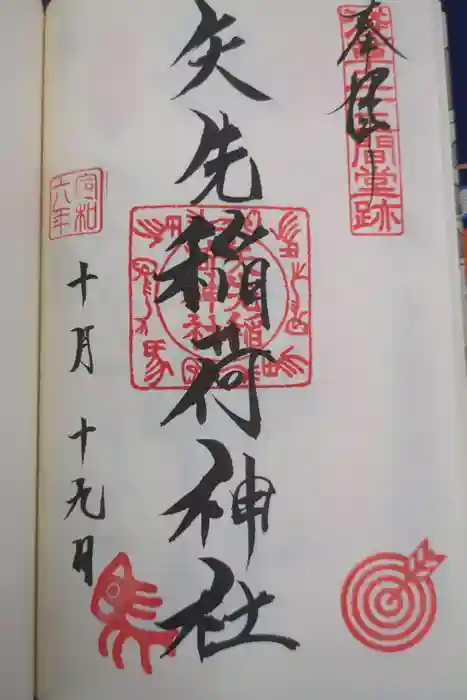 奉拝
三十三間堂跡
矢先稲荷神社
令和六年
十月十九日